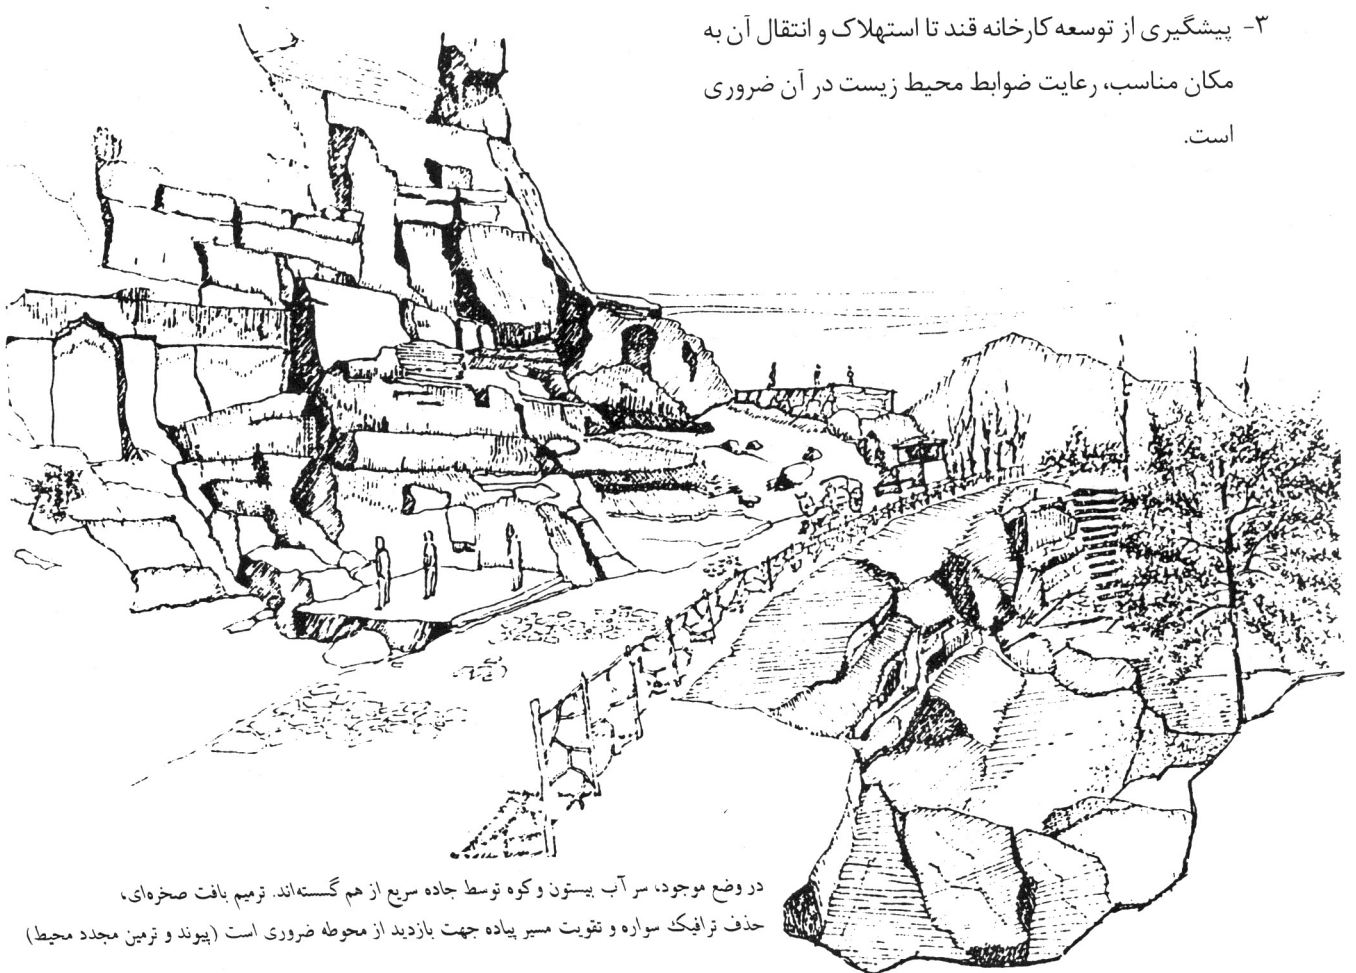 ۳- پیشگیری از توسعه کارخانه قند تا استهلاک و انتقال آن به
مکان مناسب، رعایت ضوابط محیط زیست در آن ضروری
است.
در وضع موجود، سر آب بیستون و کوه توسط جاده سریع از هم گسسته‌اند. ترمیم بافت صخره‌ای،
حذف ترافیک سواره و تقویت مسیر پیاده جهت بازدید از محوطه ضروری است (پیوند و ترمین مجدد محیط)